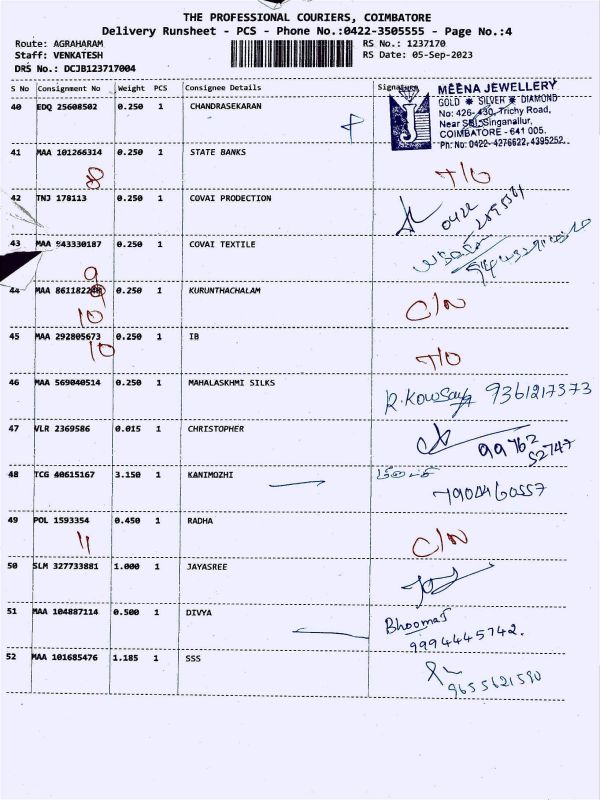 THE PROFESSIONAL COURIERS, COIMBATORE
Delivery Runsheet - PCS - Phone No.:0422-3505555 - Page No.:4
Route: AGRAHARAM RS No.: 1237170
Staff: VENKATESH RS Date: 05-Sep-2023
DRS No.: DCJB123717004
S No Consignment No Weight PCS Consignee Details Signature
MEENA JEWELLERY
GOLD ✷ SILVER ✷ DIAMOND
No: 426-430, Trichy Road,
Near SBI, Singanallur,
COIMBATORE - 641 005.
Ph: No: 0422-4276622, 4395252
40 EDQ 25608502 0.250 1 CHANDRASEKARAN
41 MAA 101266314 0.250 1 STATE BANKS T/O
8
42 TNJ 178113 0.250 1 COVAI PRODUCTION 0422
43 MAA 843330187 0.250 1 COVAI TEXTILE
9
44 MAA 8611822 0.250 1 KURUNTHACHALAM C/N
10
45 MAA 292805673 0.250 1 IB T/O
10
46 MAA 569040514 0.250 1 MAHALASKHMI SILKS R. Kowsalya 9361217373
47 VLR 2369586 0.015 1 CHRISTOPHER 99762
52747
48 TCG 40615167 3.150 1 KANIMOZHI
7904460557
49 POL 1593354 0.450 1 RADHA C/N
11
50 SLM 327733881 1.000 1 JAYASREE
51 MAA 104887114 0.500 1 DIVYA Bhooma
9994445742.
52 MAA 101685476 1.185 1 SSS
9655621590